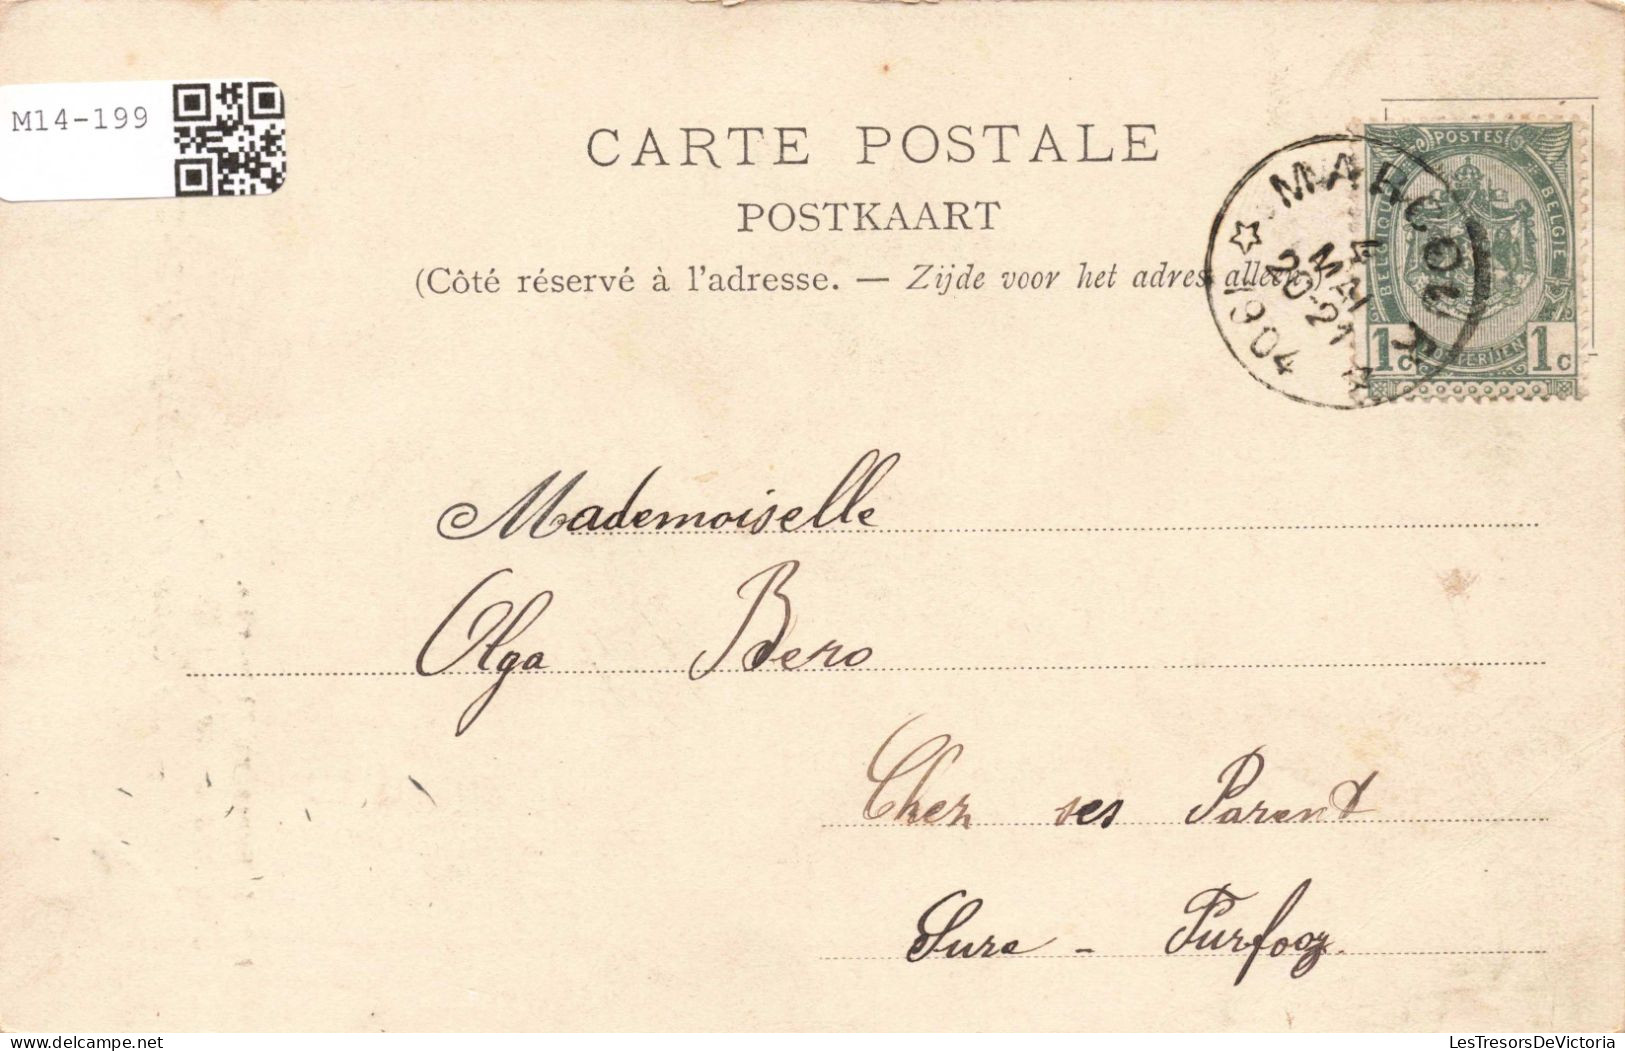 M14-199
CARTE POSTALE
POSTKAART
(Côté réservé à l'adresse. — Zijde voor het adres alleen.)
MARCO
4
MAI
20-21
1904
POSTES
BELGIQUE
BELGIE
1c 1c
POSTERIJEN
Mademoiselle
Olga Bero
Chez ses Parent
Sure - Furfooz.
LesTresorsDeVictoria
www.delcampe.net